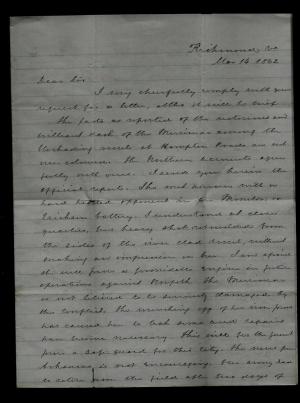 Richmond, Va
Mar 14 1862
Dear Sir
I very cheerfully comply with your
request for a letter, altho it will be brief
The facts as reported of the victories and
brilliant dash of the Merrimac among the
blockading vessels at Hampton Roads are not
over colored. The Northern accounts agree
fully with ours. I send you herein the
official report. She will however will
hard headed opponent in the Monitor, or
Ericsson battery. I understand at close
quarters, our heavy shot rebounded from
the sides of the iron clad vessel, without
making an impression on her. I am afraid
she will form a formidable engine in future
operations against Norfolk. The Merrimac
is not believed to be seriously damaged by
the conflict. The wrenching off of her iron prow
has caused her to leak some and repairs
have become necessary. This will for the present
prove a safe guard for this city. The news from
Arkansas is not encouraging. Our army had
to retire from the field after two days of